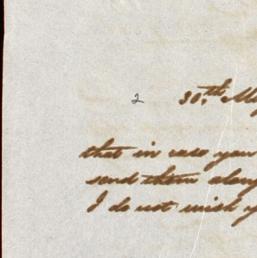 2 30.th
that in case you
send them along
I do not wish